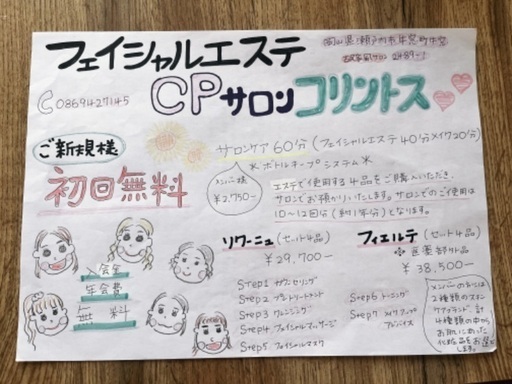 フェイシャルエステ
岡山県瀬戸内市牛窓町牛窓
0869427145
CPサロンコリントス
ご新規様
初回無料
サロンケア60分(フェイシャルエステ40分メイク20分)
*ボトルキープシステム*
メンバー様
¥2,750-
エステで使用する4品をご購入いただき、
サロンでお預かりいたします。サロンでのご使用は
10〜12回分(約1年分)となります。
リワーニュ(セット4品)
¥29,700-
フィエルテ(セット4品)
医薬部外品
¥38,500-
入会金
年会費
無料
Step1 カウンセリング
Step2 プレトリートメント
Step3 クレンジング
Step4 フェイシャルマッサージ
Step5 フェイシャルマスク
Step6 トーニング
Step7 メイクアップ
アドバイス
メンバーの方には
2種類のスキン
ケアブランド、計
4種類の中から
お肌にあった
化粧品をお選び